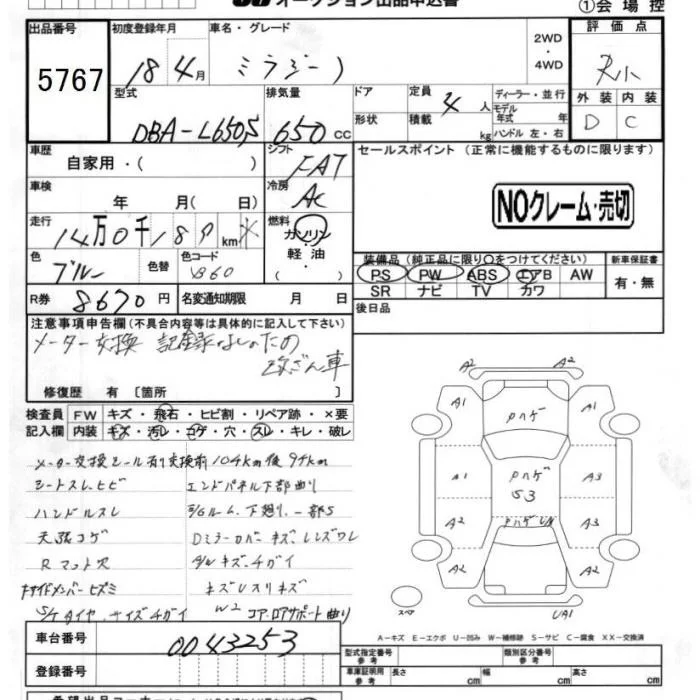 オークション出品申込書
①会場控
出品番号 5767
初度登録年月 18年 4月
車名・グレード ミラジーノ
2WD・4WD
評価点
型式 DBA-L650S
排気量 650 CC
ドア
形状
定員 4人
積載 kg
ディーラー・並行
モデル年式 年
ハンドル 左・右
外装 D
内装 C
車歴 自家用・( )
シフト FAT
セールスポイント (正常に機能するものに限ります)
車検 年 月( 日)
冷房 AC
NOクレーム・売切
走行 14万0千189km
燃料 ガソリン・軽油
色 ブルー
色替
色コード B60
装備品(純正品に限り○をつけてください)
PS PW ABS エアB AW
SR ナビ TV カワ
新車保証書
有・無
R券 8670円
名変通知期限 月 日
後日品
注意事項申告欄(不具合内容等は具体的に記入して下さい)
メーター交換 記録なしのため
改ざん車
修復歴 有 [箇所 ]
検査員 FW キズ・飛石・ヒビ割・リペア跡・×要
記入欄 内装 キズ・汚レ・コゲ・穴・スレ・キレ・破レ
メーター交換シール有り交換前104km後97km
シートスレ、ヒビ エンドパネル下部曲り
ハンドルスレ E/Gルーム、下廻り、一部S
天張コゲ Dミラーカバーキズ レンズワレ
Rマット穴 A/Wキズ、チガイ
サイドメンバーヒズミ
S/Tタイヤ、サイズチガイ コア、ロアサポート曲り
A2 A2
A1 ハゲ A1
A1 ハゲ A3
S3
A2 A3
A2 A2
スペア UA1
A－キズ E－エクボ U－凹み W－補修跡 S－サビ C－腐食 XX－交換済
車台番号 0043253
登録番号
型式指定番号 参考
類別区分番号 参考
車庫証明用 参考 長さ cm 幅 cm 高さ cm